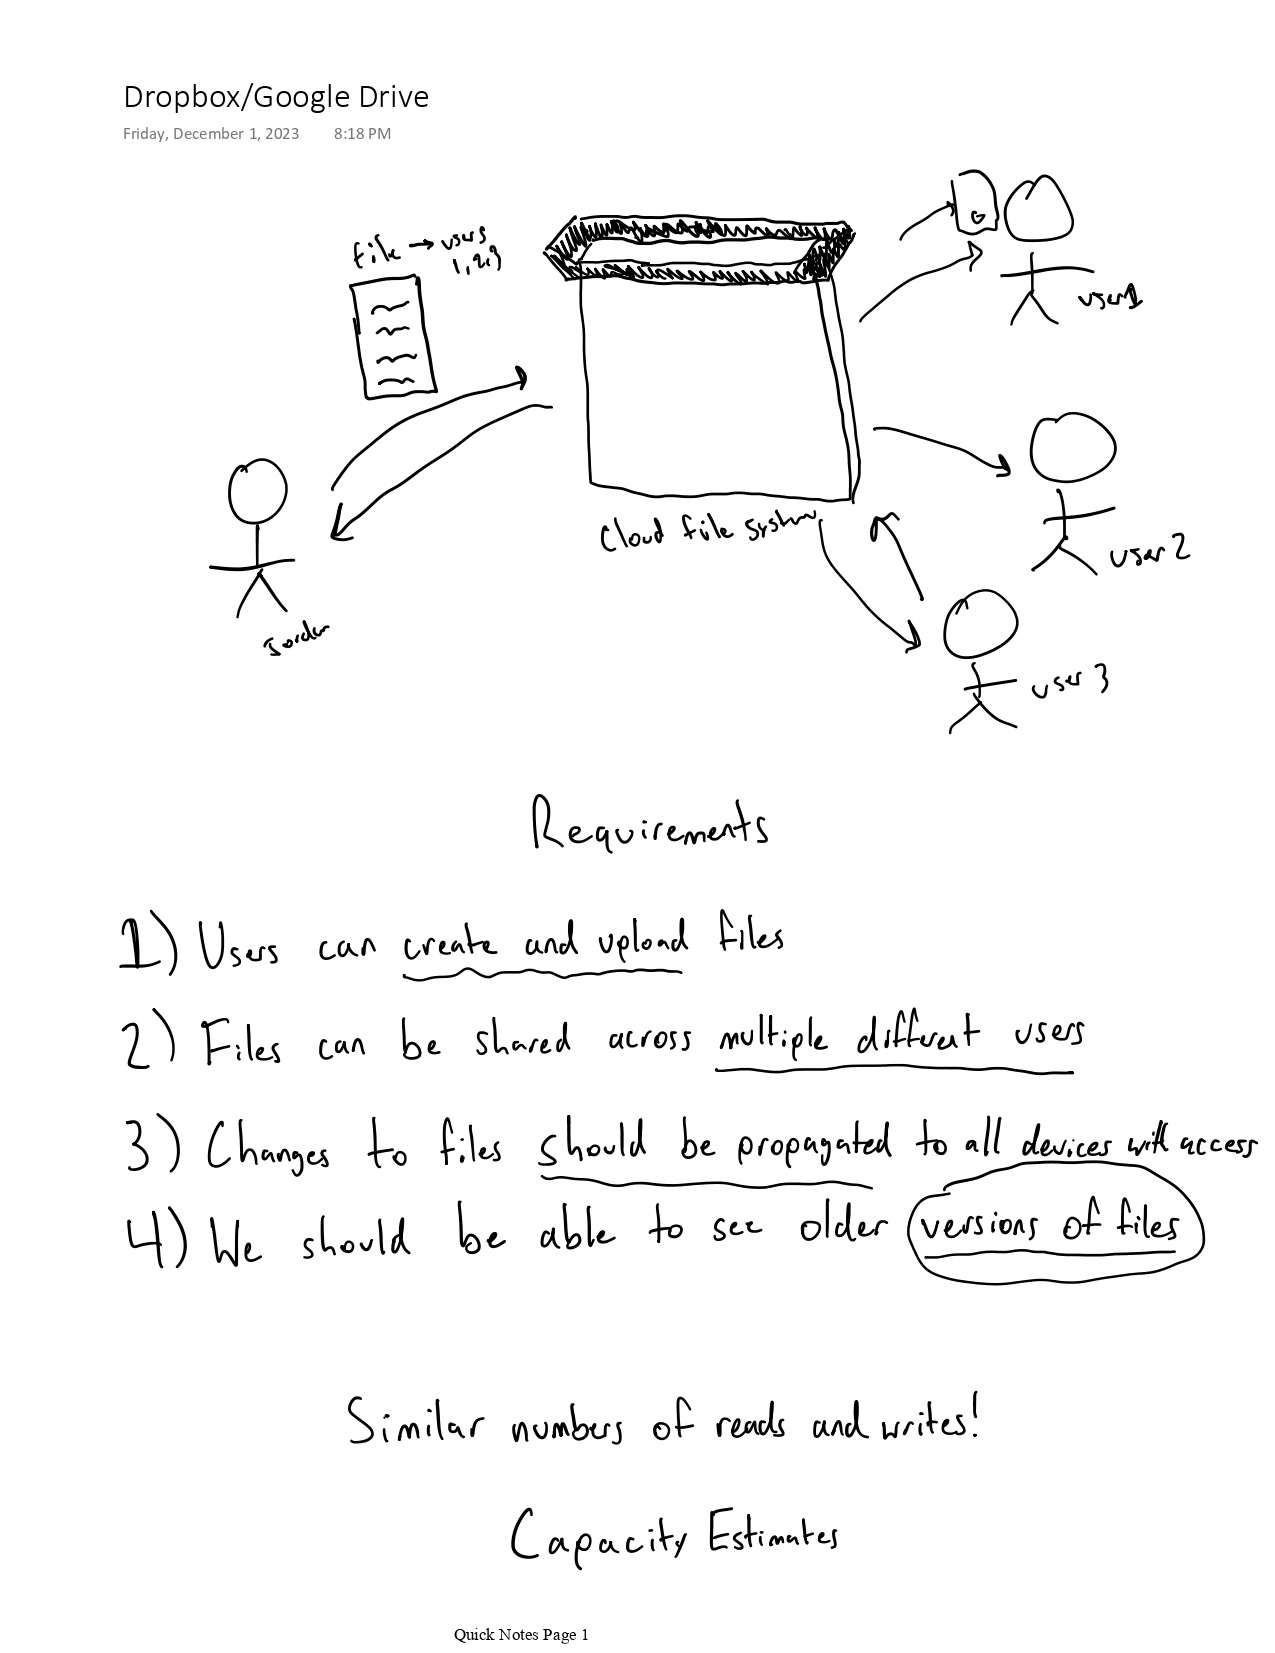 Dropbox/Google Drive
Friday, December 1, 2023 8:18 PM
file → users
1, 2, 3
G
user 1
Cloud file system
user 2
Jordan
user 3
Requirements
1) Users can create and upload files
2) Files can be shared across multiple different users
3) Changes to files should be propagated to all devices with access
4) We should be able to see older versions of files
Similar numbers of reads and writes!
Capacity Estimates
Quick Notes Page 1